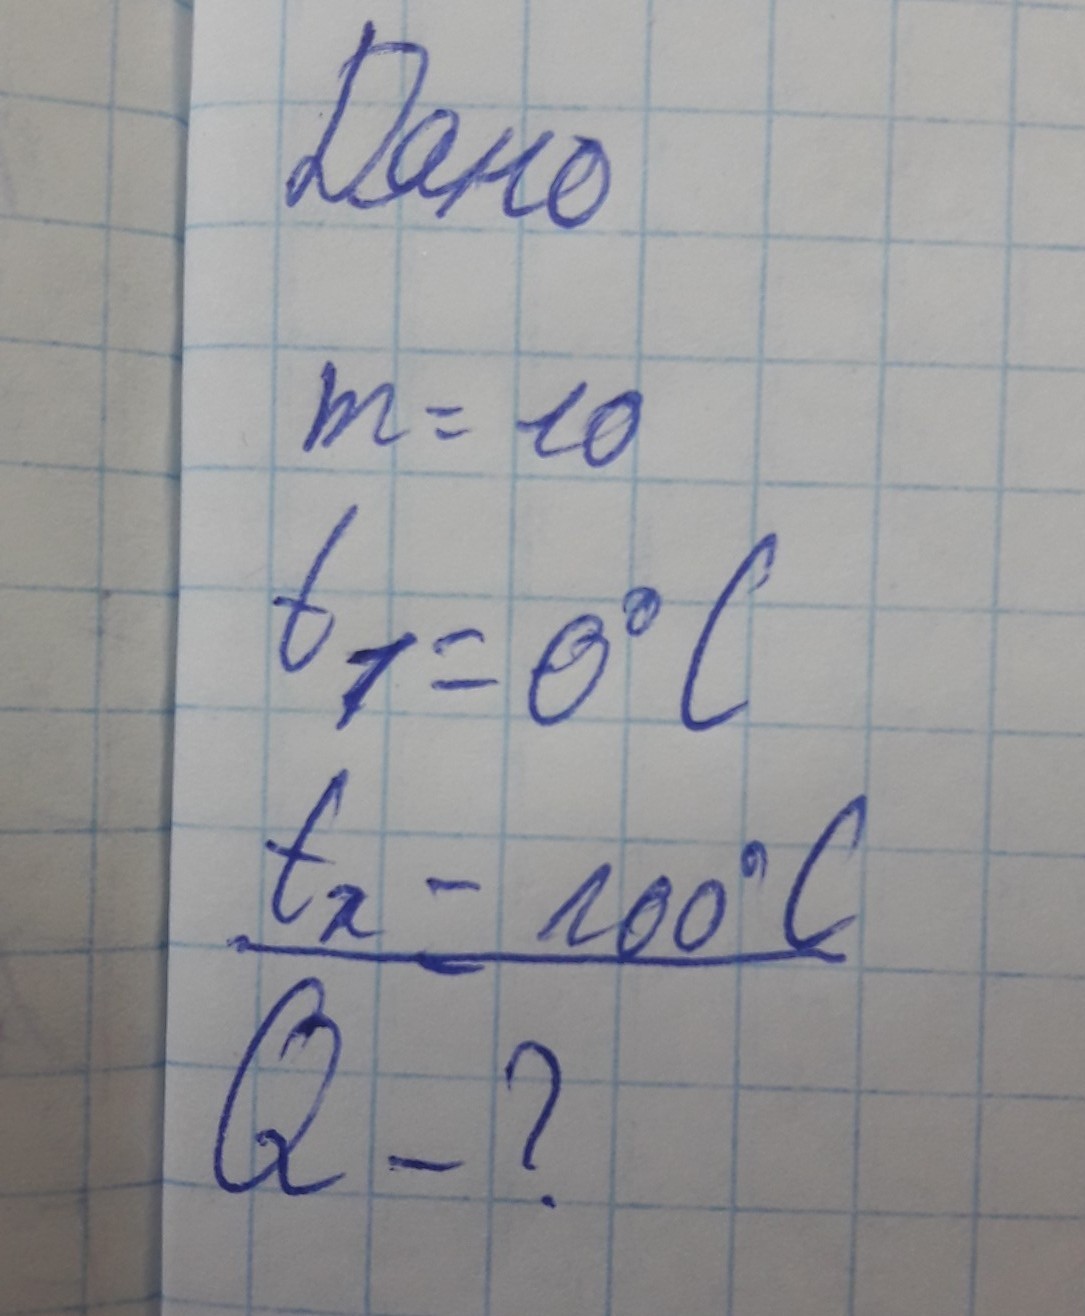 Дано
m = 10
t₁ = 0°C
t₂ - 100°C
Q - ?